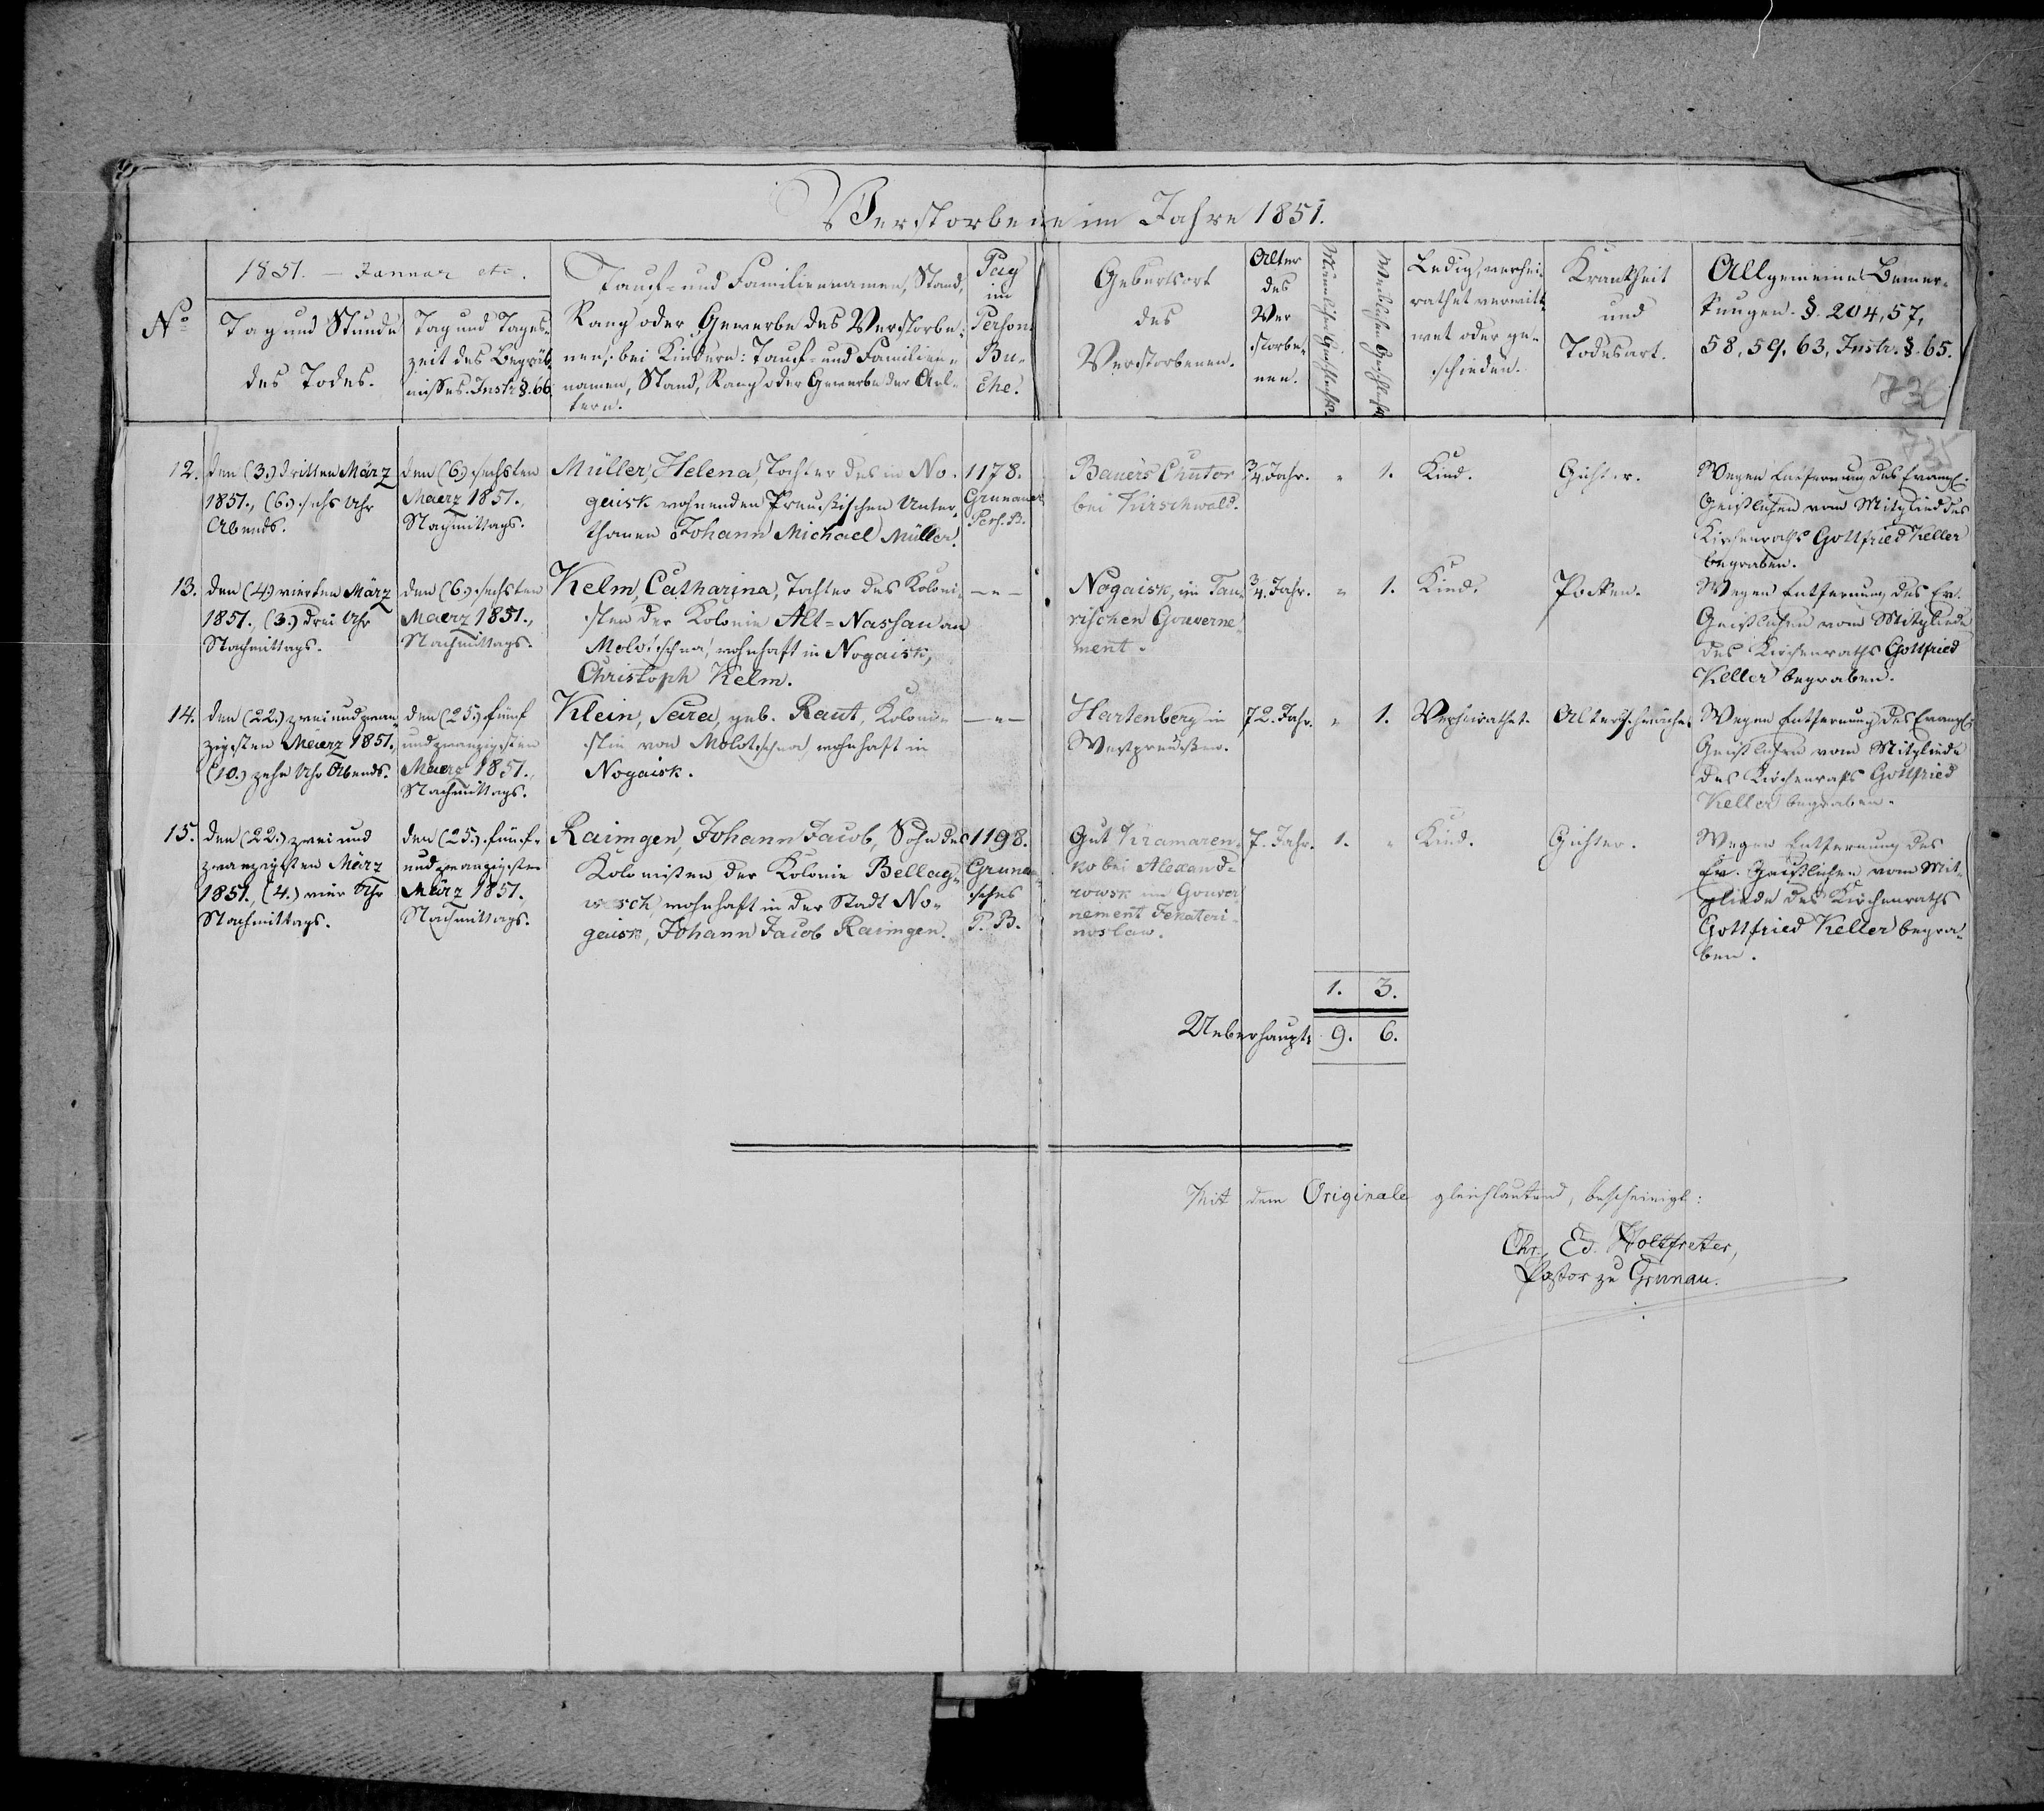 Verstorbene im Jahre 1851.
No
1851. — Januar etc.
Tag und Stunde
des Todes.
Tag und Tages-
zeit des Begräb-
nisses. Instr. §. 66.
Tauf- und Familiennamen, Stand,
Rang oder Gewerbe des Verstorbe-
nen; bei Kindern: Tauf- und Familien-
namen, Stand, Rang oder Gewerbe der Ael-
tern.
Pag
im
Person.
Bu-
che.
Geburtsort
des
Verstorbenen.
Alter
des
Ver
storbe-
nen.
Männlichen Geschlechts.
Weiblichen Geschlechts.
Ledig, verhei-
rathet verwitt-
wet oder ge-
schieden.
Krankheit
und
Todesart.
Allgemeine Bemer-
kungen. §. 204, 57,
58, 59, 63, Instr. §. 65.
12.
den (3.) dritten März
1851., (6.) sechs Uhr
Abends.
den (6.) sechsten
Maerz 1851.,
Nachmittags.
Müller, Helena, Tochter des in No-
gaisk wohnenden Preußischen Unter-
thanen Johann Michael Müller.
1178.
Grunauer
Pers. B.
Bauers Chutor
bei Kirschwald.
3/4. Jahr.
"
1.
Kind.
Gichter.
Wegen Entfernung des Evangl.
Geistlichen vom Mitglied des
Kirchenraths Gottfried Keller
begraben.
13.
den (4) vierten März
1851., (3.) drei Uhr
Nachmittags.
den (6.) sechsten
Maerz 1851.,
Nachmittags.
Kelm, Catharina, Tochter des Koloni-
sten der Kolonie Alt=Nassau an
Molotschna, wohnhaft in Nogaisk,
Christoph Kelm.
— " —
Nogaisk, im Tau-
rischen Gouverne-
ment.
3/4. Jahr.
"
1.
Kind.
Pocken.
Wegen Entfernung des Ev.
Geistlichen vom Mitgliede
des Kirchenraths Gottfried
Keller begraben.
14.
den (22.) zwei und zwan-
zigsten Maerz 1851.,
(10.) zehn Uhr Abends.
den (25.) fünf
und zwanzigsten
Maerz 1851.,
Nachmittags.
Klein, Sara, geb. Raut, Koloni-
stin von Molotschna, wohnhaft in
Nogaisk.
— " —
Hartenberg in
Westpreußen.
72. Jahr.
"
1.
Verheirathet.
Altersschwäche.
Wegen Entfernung des Evangl.
Geistlichen vom Mitgliede
des Kirchenraths Gottfried
Keller begraben.
15.
den (22.) zwei und
zwanzigsten März
1851., (4.) vier Uhr
Nachmittags.
den (25.) fünf-
und zwanzigsten
März 1851.,
Nachmittags.
Raimgen, Johann Jacob, Sohn des
Kolonisten der Kolonie Bellag-
wesch, wohnhaft in der Stadt No-
gaisk, Johann Jacob Raimgen.
1198.
Grunau-
sches
P. B.
Gut Kramaren-
ko bei Alexand-
rowsk im Gouver-
nement Jekateri-
noslaw.
7. Jahr.
1.
"
Kind.
Gichter.
Wegen Entfernung des
Ev. Geistlichen vom Mit-
gliede des Kirchenraths
Gottfried Keller begra-
ben.
1. 3.
Ueberhaupt: 9. 6.
Mit dem Originale gleichlautend, bescheinigt:
Chr. Ed. Holtfreter,
Pastor zu Grunau.